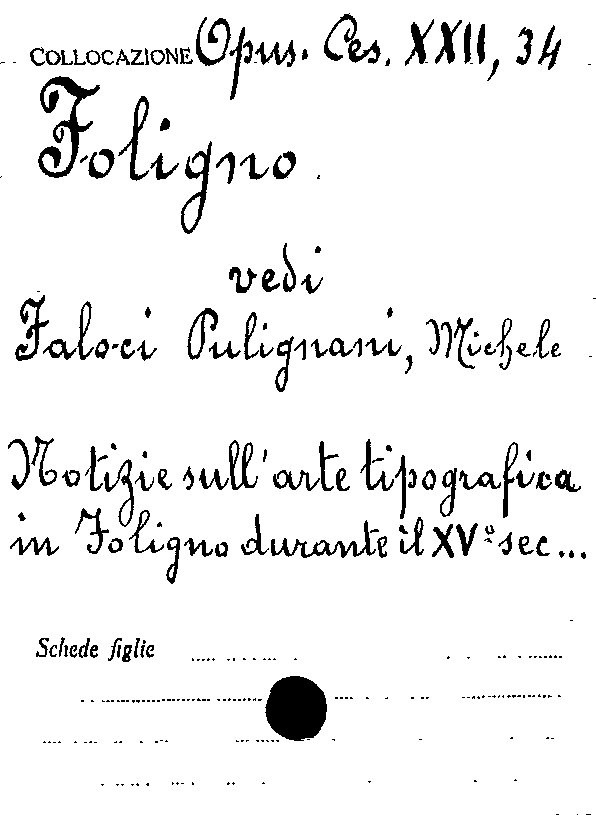 COLLOCAZIONE Opus. Ces. XXII, 34
Foligno.
vedi
Faloci Pulignani, Michele
Notizie sull'arte tipografica
in Foligno durante il XVº sec...
Schede figlie